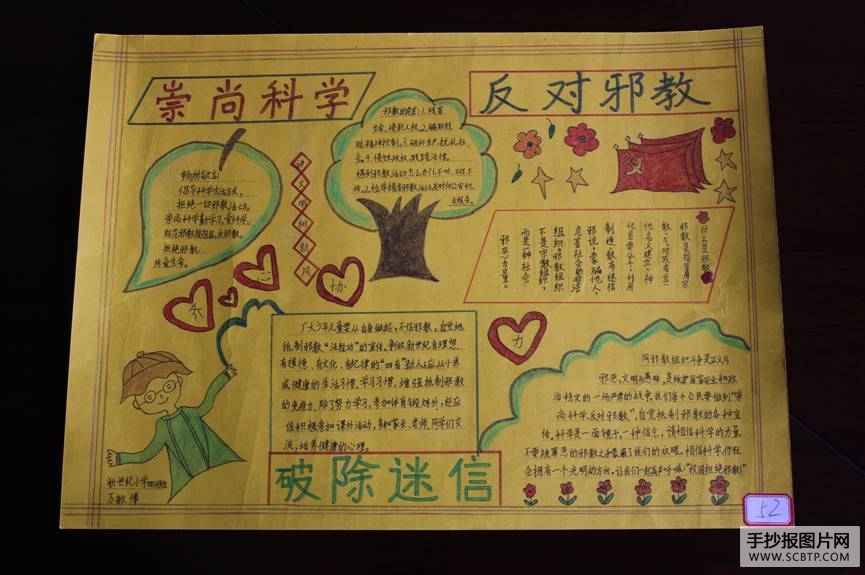 崇尚科学
反对邪教
畅所欲言:
倡导科学生活方式,
拒绝一切邪教活动。
崇尚科学勤学习,爱科学。
拒绝邪教
珍爱生命。
讲文明树新风
邪教的危害:1.残害
生命,侵犯人权。2.骗取钱
财,精神控制。3.破坏生产,扰乱社
会。4.侵蚀政权,践踏法律。
什么是邪教
邪教是指冒用宗
教、气功或者其
他名义建立、神
化首要分子,利用
制造、散布迷信
邪说,蒙骗他人,
危害社会的非法
组织。邪教组织
不是宗教组织,
而是一种社会
邪恶力量。
齐
心
协
力
广大少年儿童要从自身做起,不信邪教,自觉地
抵制邪教“法轮功”的宣传。争做新世纪有理想、
有道德、有文化、有纪律的“四有”新人。应从小养
成健康的生活习惯、学习习惯,增强抵制邪教
的免疫力。除了努力学习,参加体育锻炼外,还应
该积极参加课外活动,多和家长、老师、同学们交
流,培养健康的心理。
同邪教组织斗争是正义与
邪恶,文明与愚昧,是维护国家安全和政
治稳定的一场严肃的战争,我们每个公民要做到“崇
尚科学,反对邪教”,自觉抵制邪教的各种宣
传。科学是一面镜子,一种信念,请相信科学的力量,
不要被罪恶的邪教之手蒙蔽了我们的双眼。相信科学,你就
会拥有一个光明的方向,让我们一起高声呼喊:“校园拒绝邪教!”
破除迷信
新世纪小学
万敏博
52
手抄报图片网
WWW.SCBTP.COM